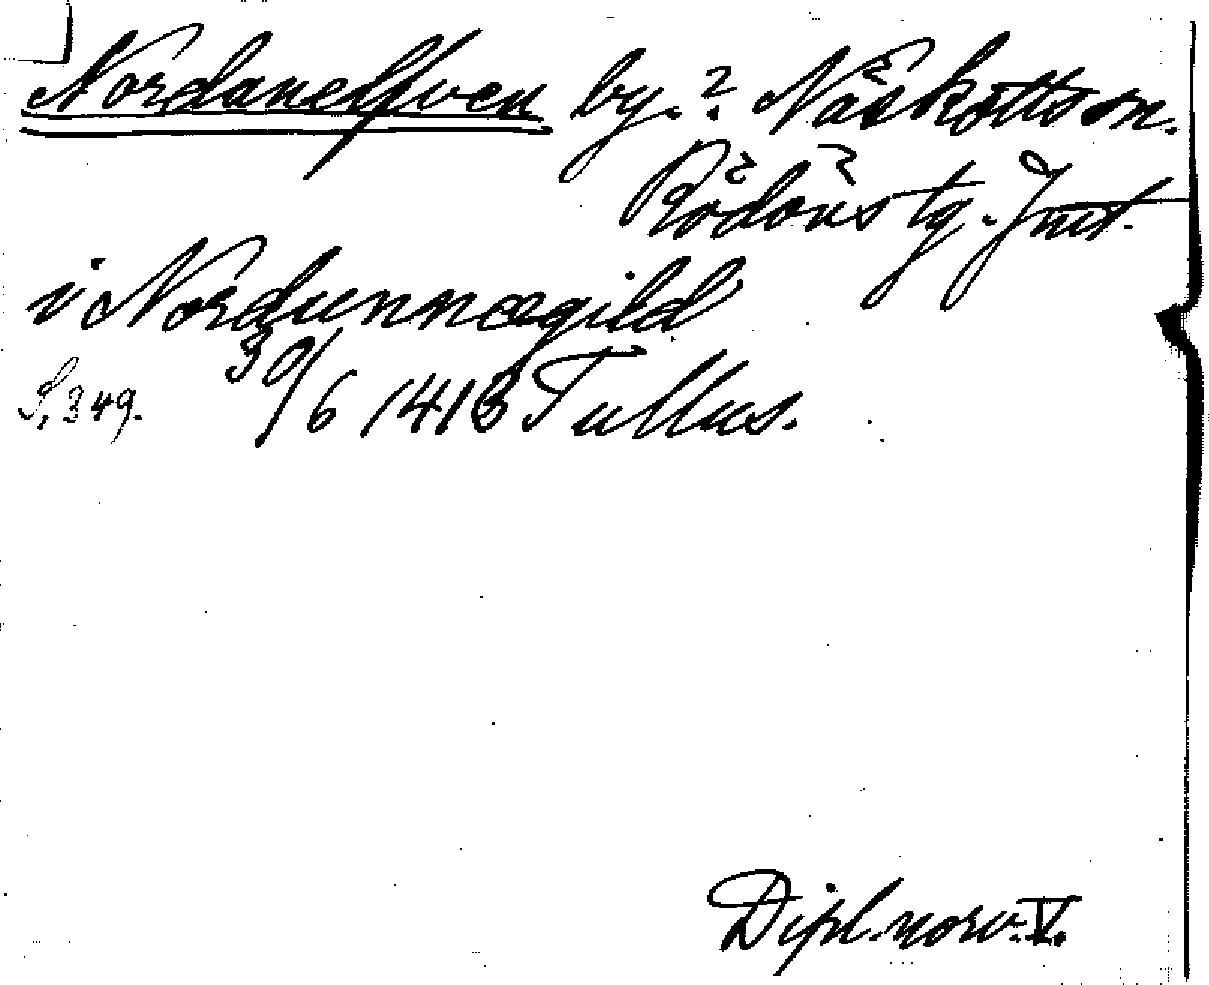 Nordanelfven by.? Näskotts sn.
Rödöns tg. Jmt.
i Nordunnægild
30/6 1413 Tullus.
S. 349.
Dipl. norv. V.